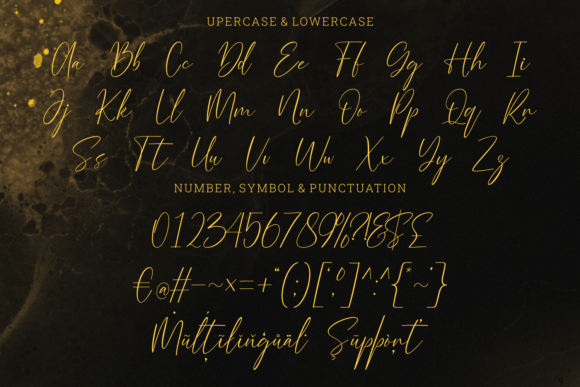 UPERCASE & LOWERCASE
Aa Bb Cc Dd Ee Ff Gg Hh Ii
Jj Kk Ll Mm Nn Oo Pp Qq Rr
Ss Tt Uu Vv Ww Xx Yy Zz
NUMBER, SYMBOL & PUNCTUATION
0123456789%?!&$£
€@#-~×=+“()[